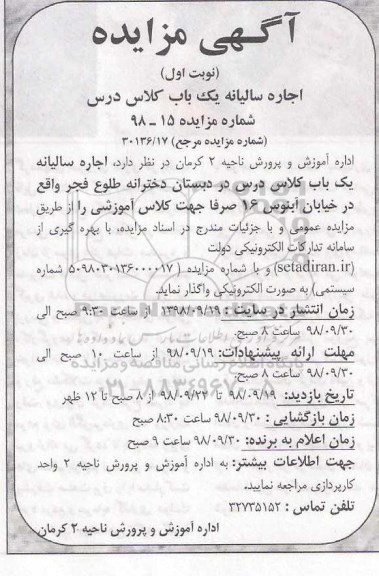 آگهی مزایده
(نوبت اول)
اجاره سالیانه یک باب کلاس درس
شماره مزایده ۱۵ ـ ۹۸
(شماره مزایده مرجع ۳۰۱۳۶/۱۷)
اداره آموزش و پرورش ناحیه ۲ کرمان در نظر دارد، اجاره سالیانه
یک باب کلاس درس در دبستان دخترانه طلوع فجر واقع
در خیابان آبنوس ۱۶ صرفا جهت کلاس آموزشی را از طریق
مزایده عمومی و با جزئیات مندرج در اسناد مزایده، با بهره گیری از
سامانه تدارکات الکترونیکی دولت
(setadiran.ir) و با شماره مزایده (۵۰۹۸۰۳۰۱۳۶۰۰۰۰۱۷ شماره
سیستمی) به صورت الکترونیکی واگذار نماید.
زمان انتشار در سایت: ۱۳۹۸/۰۹/۱۹ از ساعت ۹:۳۰ صبح الی
۹۸/۰۹/۳۰ ساعت ۸ صبح.
مهلت ارائه پیشنهادات: ۹۸/۰۹/۱۹ از ساعت ۱۰ صبح الی
۹۸/۰۹/۳۰ ساعت ۸ صبح.
تاریخ بازدید: ۹۸/۰۹/۱۹ تا ۹۸/۰۹/۲۳ از ۸ صبح تا ۱۲ ظهر
زمان بازگشایی: ۹۸/۰۹/۳۰ ساعت ۸:۳۰ صبح
زمان اعلام به برنده: ۹۸/۰۹/۳۰ ساعت ۹ صبح
جهت اطلاعات بیشتر: به اداره آموزش و پرورش ناحیه ۲ واحد
کارپردازی مراجعه نمایید.
تلفن تماس: ۳۲۷۳۵۱۵۲
اداره آموزش و پرورش ناحیه ۲ کرمان